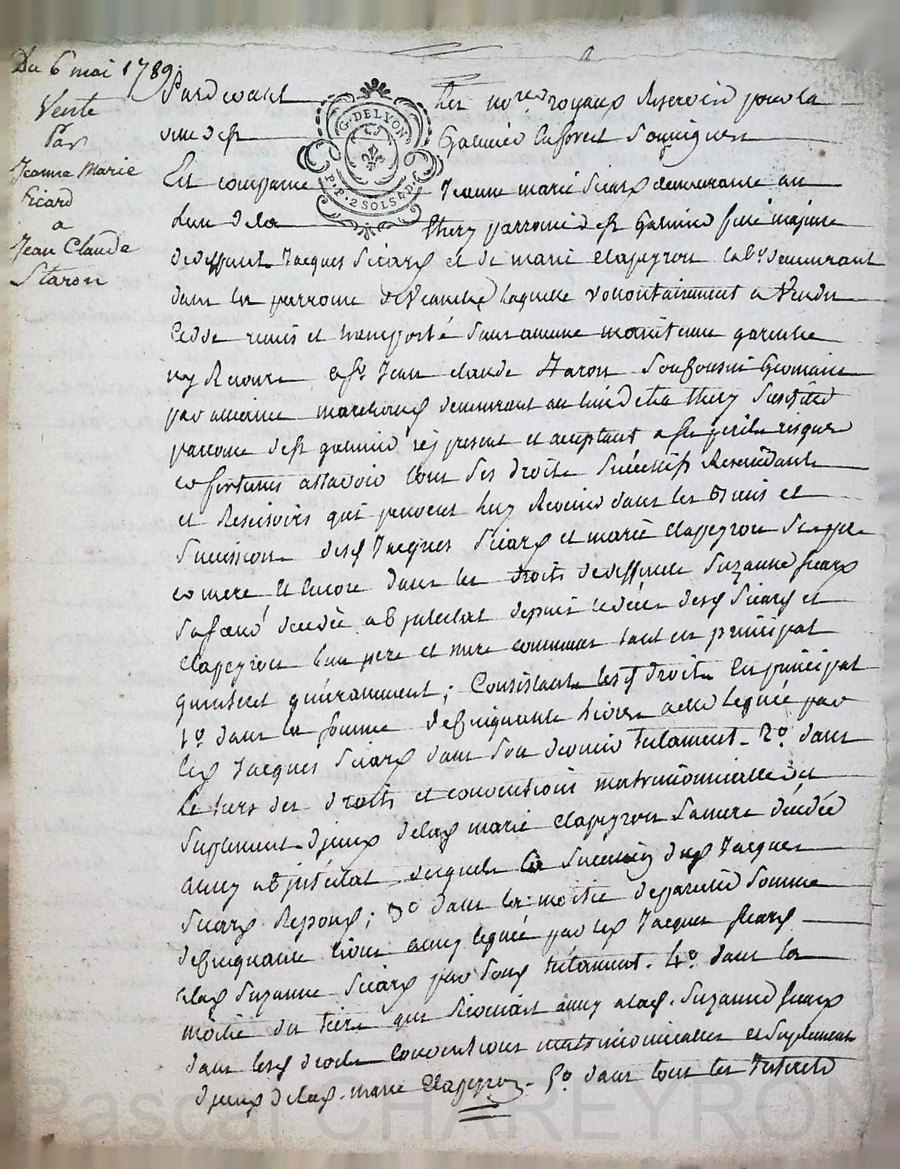 Du 6 mai 1789
Vente
Par
Jeanne Marie
Sicard
a
Jean Claude
Staron
G. DE LYON
P.P. 2 SOLS 4 D.
Pardevant Les no.res royaux Reservés pour la
ville de St Galmier en forest soussignés
Est comparue Jeanne marie Sicard demeurante au
lieu de la thery parroisse de St Galmier fille majeure
de deffunt Jacques Sicard et de marie Clapeyron demeurant
dans la parroisse de laquelle vollontairement a Vendu
Cedde remis et transporté sans aucune maintenue garentie
ny Recours a Sr Jean Claude Staron
marchand demeurant au lieu de la thery susditte
parroisse de St galmier icy present et acceptant a ses perils risques
et fortunes assavoir tous ses droits successifs Rescindants
et Rescisoirs qui peuvent luy Revenir dans les Biens et
succession desd Jacques Sicard et marie Clapeyron ses pere
et mere et encore dans les droits de deffunte Suzanne Sicard
sa sœur decedée ab intestat depuis le décès desd Sicard et
Clapeyron leur pere et mere communs tant en principal
qu'interet ; Consistants lesd droits En principal
1o dans la somme de cinquante livres a elle leguée par
led Jacques Sicard dans son dernier testament. 2o dans
le tiers des droits et conventions matrimonialles et
suplement d'iceux de lad marie Clapeyron sa mere decedée
aussy ab intestat desquels la succession dud Jacques
Sicard Repond ; 3o dans la moitié de pareille somme
de cinquante livres aussy leguée par led Jacques Sicard
a lad Suzanne Sicard par sond testament. 4o dans la
moitié du tiers qui Revenait aussy a lad. Suzanne Sicard
dans lesd droits Conventions matrimonialles et suplement
d'iceux de lad. marie Clapeyron. 5o dans tous les Interets
Pascal CHAREYRON